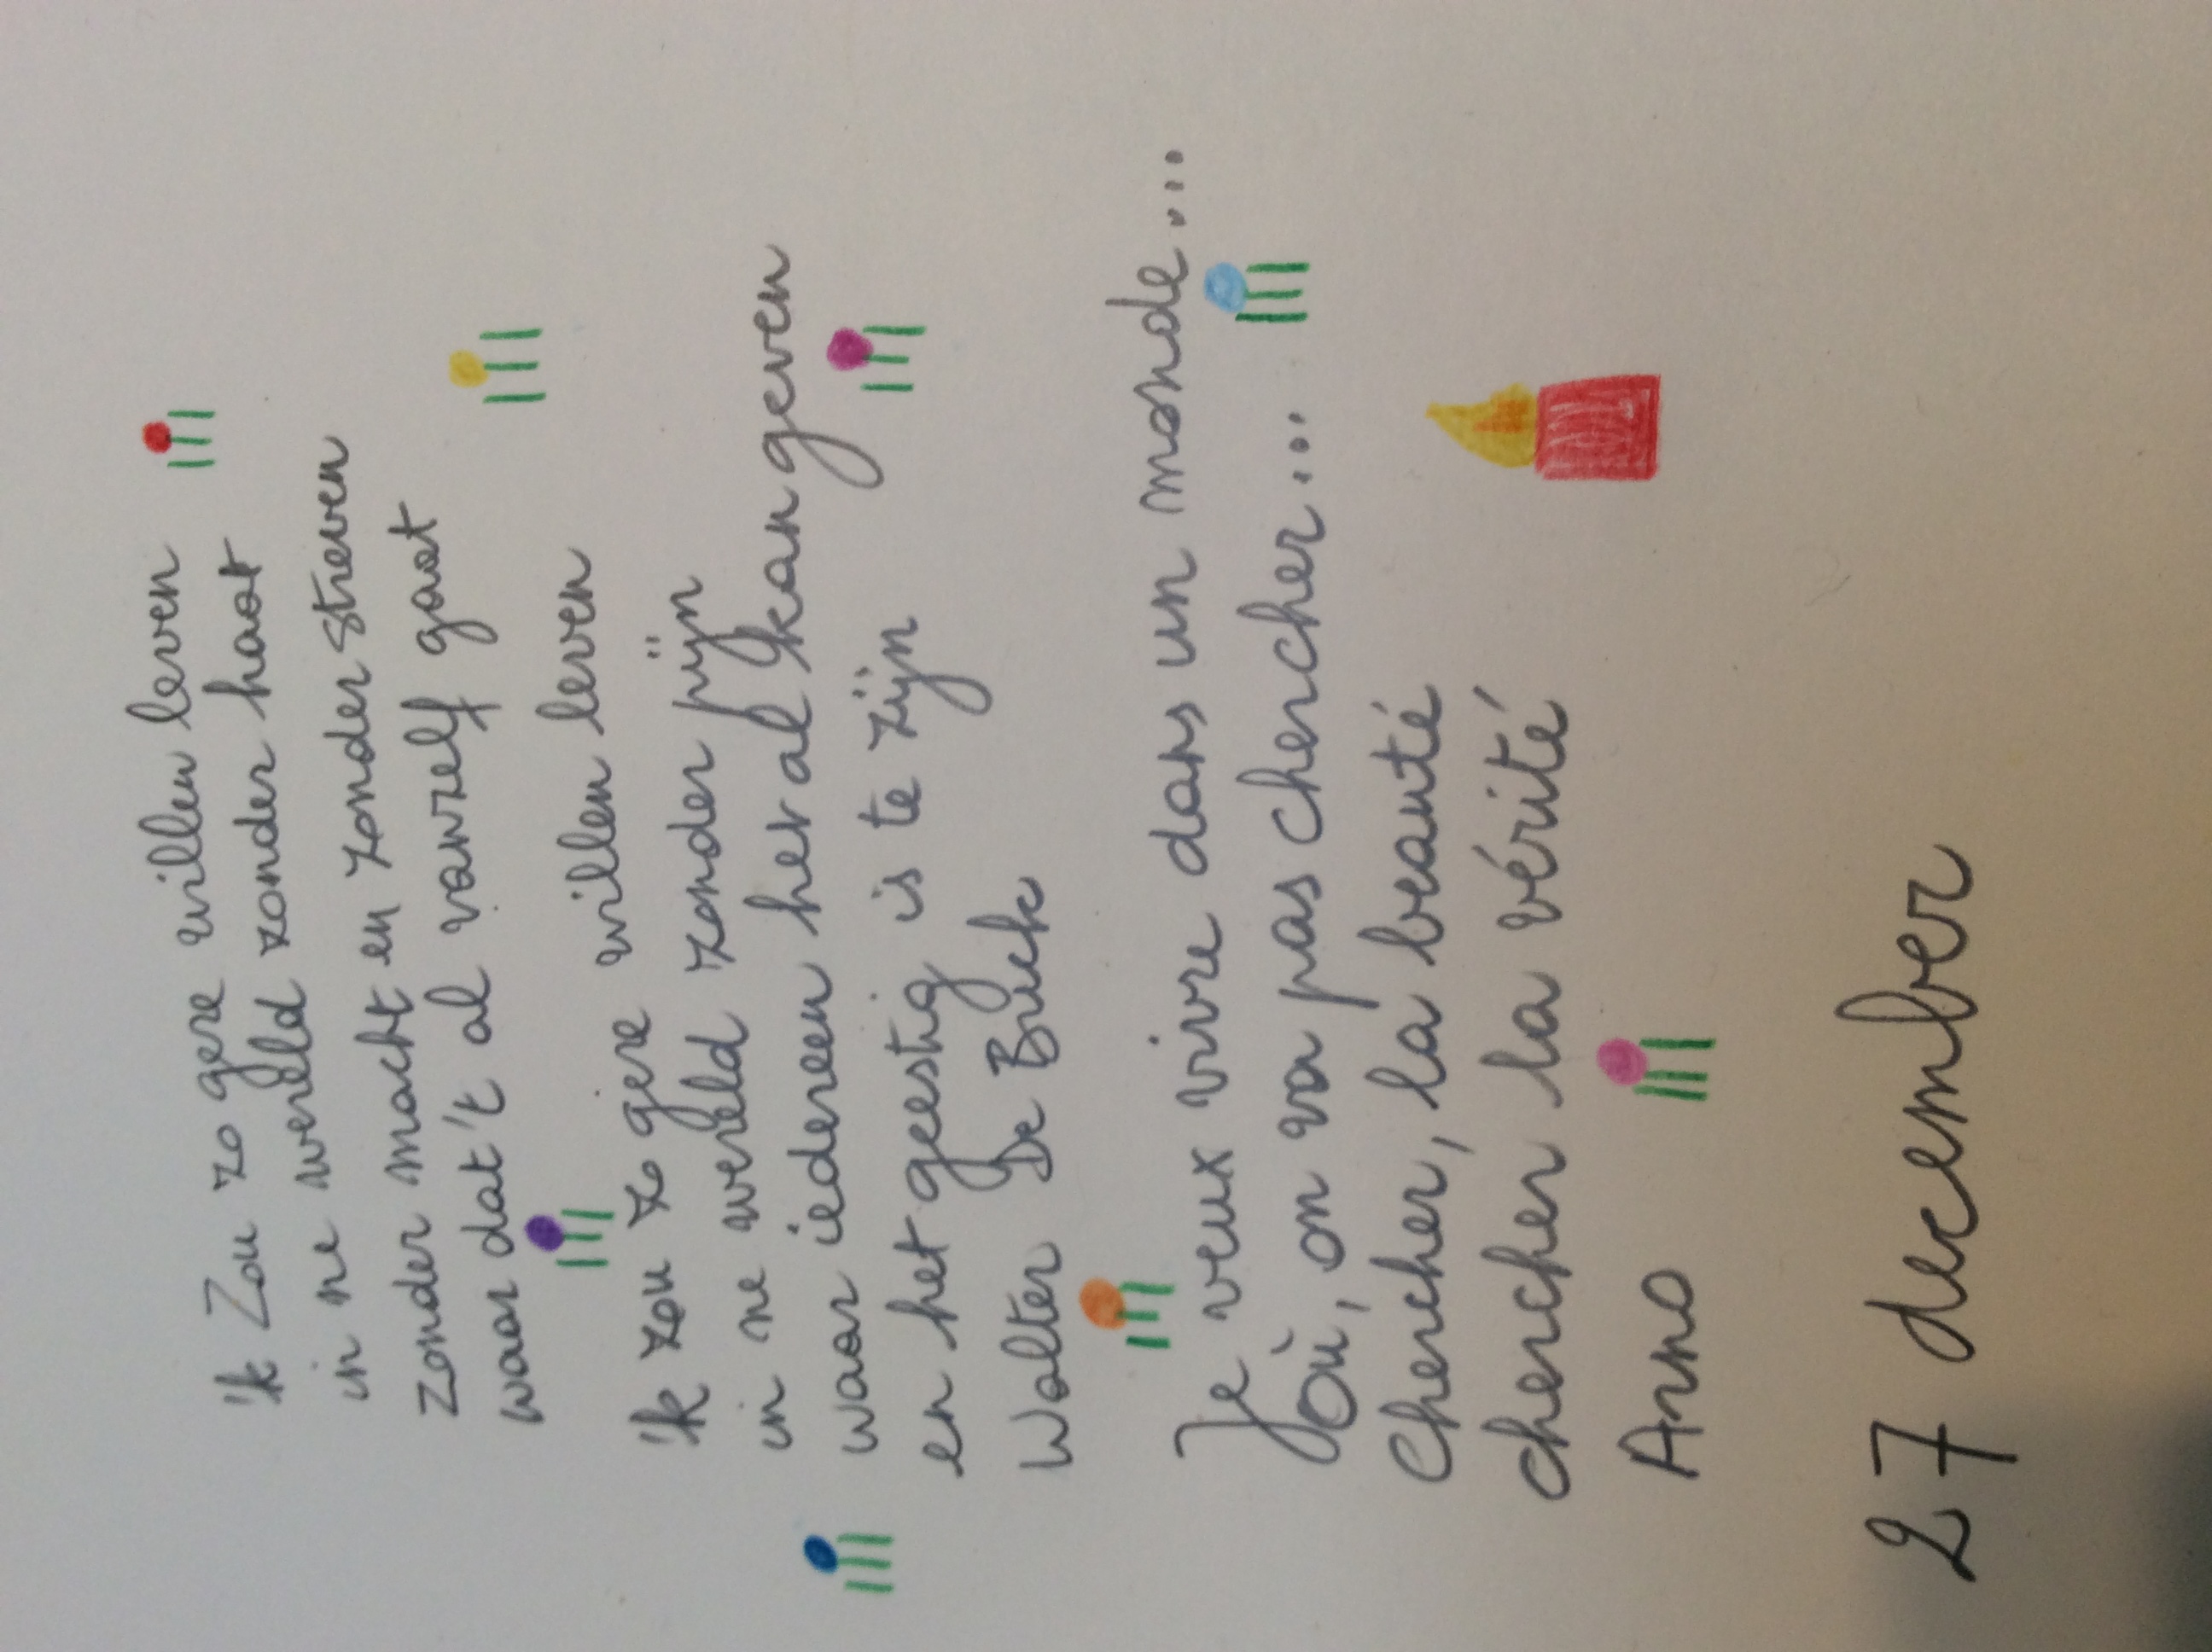 'k Zou zo gere willen leven
in ne wereld zonder haat
zonder macht en zonder streven
waar dat 't al vanzelf gaat
'k zou zo gere willen leven
in ne wereld zonder pijn
waar iedereen het al kan geven
en het geestig is te zijn
Walter De Buck
Je veux vivre dans un monde...
Où, on va pas chercher...
Chercher, la beauté
chercher la vérité
Arno
27 december